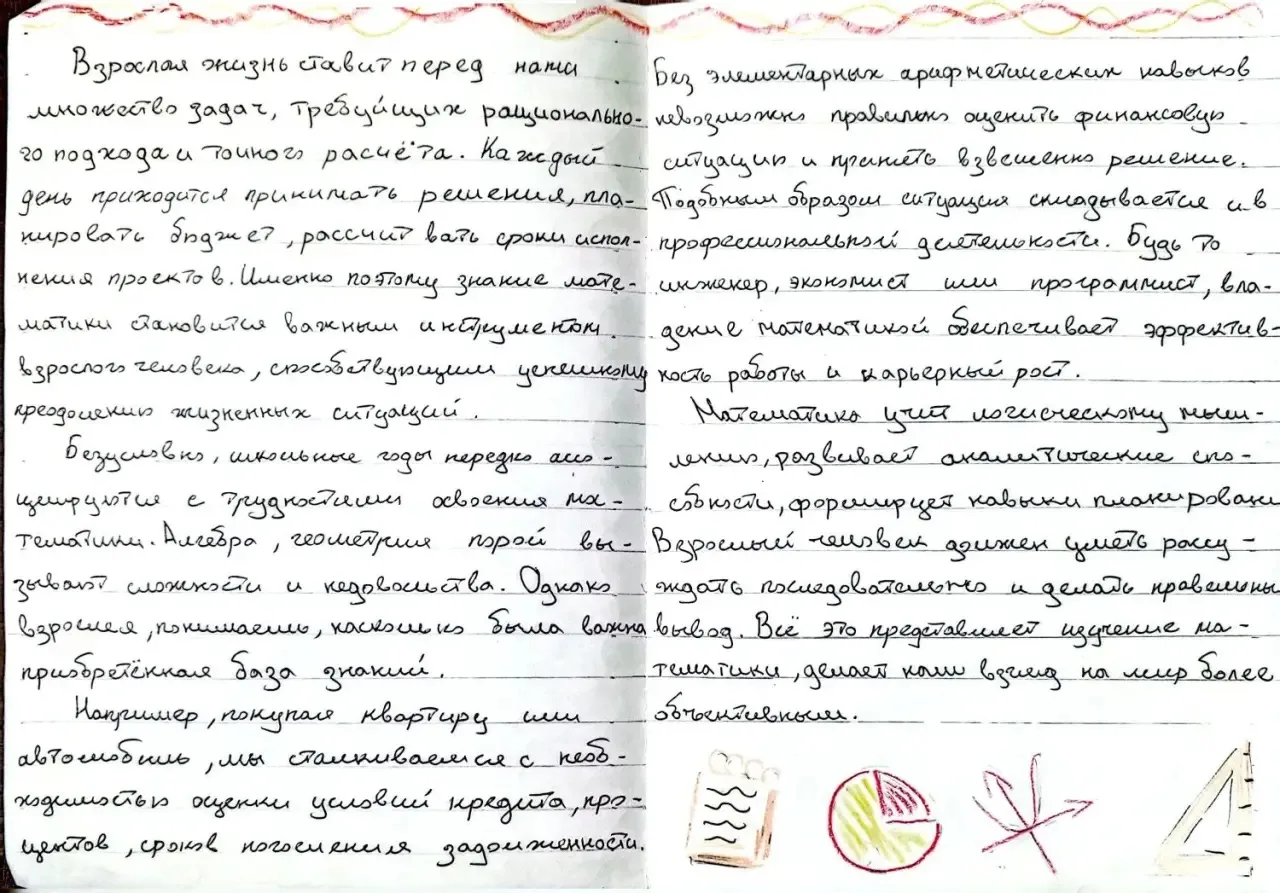 Взрослая жизнь ставит перед нами
множество задач, требующих рационально-
го подхода и точного расчёта. Каждый
день приходится принимать решения, пла-
нировать бюджет, рассчит вать сроки испол-
нения проектов. Именно поэтому знание мате-
матики становится важным инструментом
взрослого человека, способствующим успешному
преодолению жизненных ситуаций.
Безусловно, школьные годы нередко ассо-
циируются с трудностями освоения ма-
тематики. Алгебра, геометрия порой вы-
зывают сложности и недовольства. Однако
взрослея, понимаешь, насколько была важна
приобретённая база знаний.
Например, покупая квартиру или
автомобиль, мы сталкиваемся с необ-
ходимостью оценки условий кредита, про-
центов, сроков погашения задолженности.
Без элементарных арифметических навыков
невозможно правильно оценить финансовую
ситуацию и принять взвешенно решение.
Подобным образом ситуация складывается и в
профессиональной деятельности. Будь то
инженер, экономист или программист, вла-
дение математикой обеспечивает эффектив-
ность работы и карьерный рост.
Математика учит логическому мыш-
лению, развивает аналитические спо-
собности, формирует навыки планировани
Взрослый человек должен уметь рассу-
ждать последовательно и делать правельны
вывод. Всё это представляет изучение ма-
тематики, делает наш взгляд на мир более
объективным.